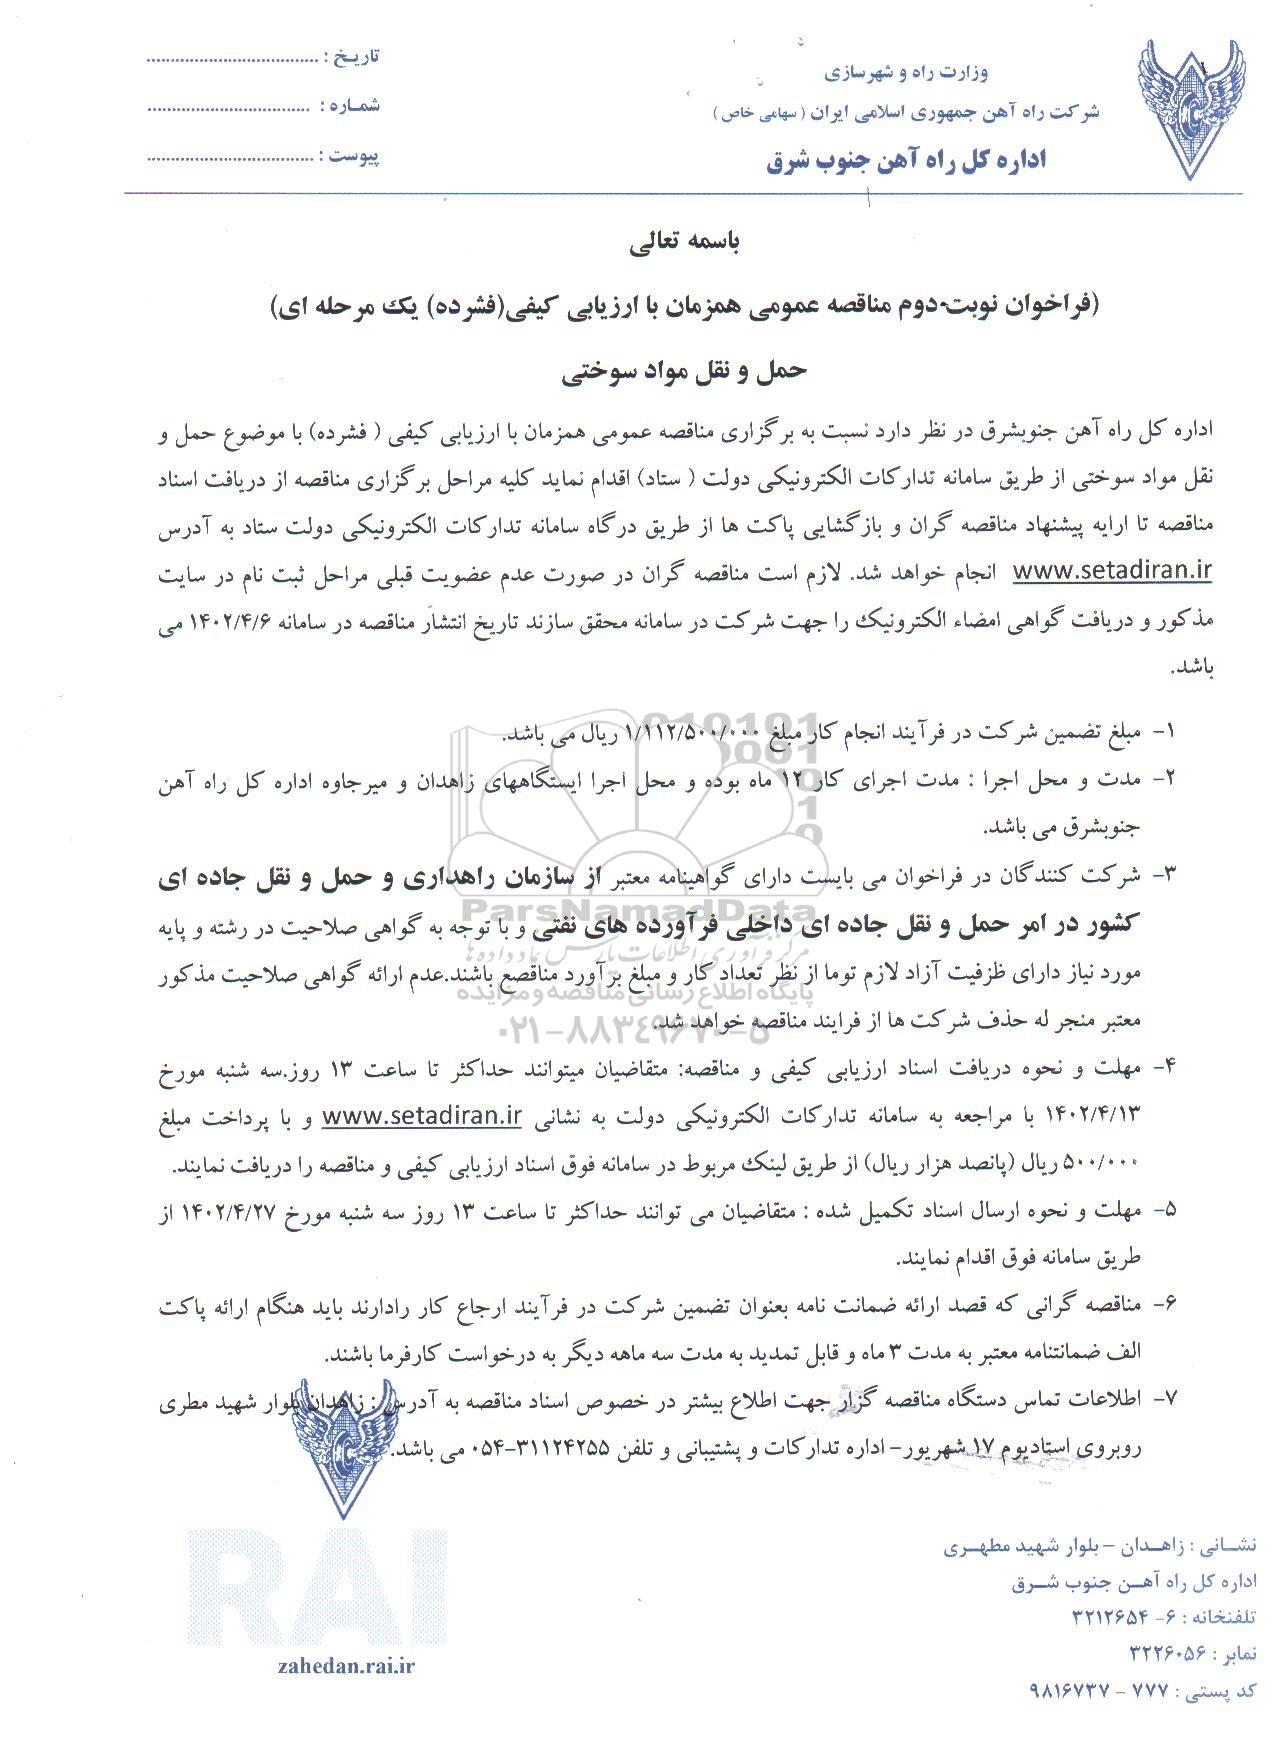 وزارت راه و شهرسازی
شرکت راه آهن جمهوری اسلامی ایران ( سهامی خاص )
اداره کل راه آهن جنوب شرق
تاریخ : ..................................
شماره : ..................................
پیوست : ..................................
باسمه تعالی
(فراخوان نوبت دوم مناقصه عمومی همزمان با ارزیابی کیفی(فشرده) یک مرحله ای)
حمل و نقل مواد سوختی
اداره کل راه آهن جنوبشرق در نظر دارد نسبت به برگزاری مناقصه عمومی همزمان با ارزیابی کیفی ( فشرده) با موضوع حمل و
نقل مواد سوختی از طریق سامانه تدارکات الکترونیکی دولت ( ستاد) اقدام نماید کلیه مراحل برگزاری مناقصه از دریافت اسناد
مناقصه تا ارایه پیشنهاد مناقصه گران و بازگشایی پاکت ها از طریق درگاه سامانه تدارکات الکترونیکی دولت ستاد به آدرس
www.setadiran.ir انجام خواهد شد. لازم است مناقصه گران در صورت عدم عضویت قبلی مراحل ثبت نام در سایت
مذکور و دریافت گواهی امضاء الکترونیک را جهت شرکت در سامانه محقق سازند تاریخ انتشار مناقصه در سامانه ۱۴۰۲/۴/۶ می
باشد.
۱- مبلغ تضمین شرکت در فرآیند انجام کار مبلغ ۱/۱۱۲/۵۰۰/۰۰۰ ریال می باشد.
۲- مدت و محل اجرا : مدت اجرای کار ۱۲ ماه بوده و محل اجرا ایستگاههای زاهدان و میرجاوه اداره کل راه آهن
جنوبشرق می باشد.
۳- شرکت کنندگان در فراخوان می بایست دارای گواهینامه معتبر از سازمان راهداری و حمل و نقل جاده ای
کشور در امر حمل و نقل جاده ای داخلی فرآورده های نفتی و با توجه به گواهی صلاحیت در رشته و پایه
مورد نیاز دارای ظرفیت آزاد لازم توما از نظر تعداد کار و مبلغ برآورد مناقصع باشند.عدم ارائه گواهی صلاحیت مذکور
معتبر منجر له حذف شرکت ها از فرایند مناقصه خواهد شد.
۴- مهلت و نحوه دریافت اسناد ارزیابی کیفی و مناقصه: متقاضیان میتوانند حداکثر تا ساعت ۱۳ روز.سه شنبه مورخ
۱۴۰۲/۴/۱۳ با مراجعه به سامانه تدارکات الکترونیکی دولت به نشانی www.setadiran.ir و با پرداخت مبلغ
۵۰۰/۰۰۰ ریال (پانصد هزار ریال) از طریق لینک مربوط در سامانه فوق اسناد ارزیابی کیفی و مناقصه را دریافت نمایند.
۵- مهلت و نحوه ارسال اسناد تکمیل شده : متقاضیان می توانند حداکثر تا ساعت ۱۳ روز سه شنبه مورخ ۱۴۰۲/۴/۲۷ از
طریق سامانه فوق اقدام نمایند.
۶- مناقصه گرانی که قصد ارائه ضمانت نامه بعنوان تضمین شرکت در فرآیند ارجاع کار رادارند باید هنگام ارائه پاکت
الف ضمانتنامه معتبر به مدت ۳ ماه و قابل تمدید به مدت سه ماهه دیگر به درخواست کارفرما باشند.
۷- اطلاعات تماس دستگاه مناقصه گزار جهت اطلاع بیشتر در خصوص اسناد مناقصه به آدرس : زاهدان بلوار شهید مطری
روبروی استادیوم ۱۷ شهریور- اداره تدارکات و پشتیبانی و تلفن ۳۱۱۲۴۲۵۵-۰۵۴ می باشد.
ParsNamadData
مرکز فرآوری اطلاعات پارس نماد داده ها
پایگاه اطلاع رسانی مناقصه و مزایده
۰۲۱-۸۸۳۴۹۶۷۰-۵
RAI
zahedan.rai.ir
نشـانی : زاهـدان – بلوار شهید مطهـری
اداره کل راه آهـن جنوب شـرق
تلفنخانه : ۶- ۳۲۱۲۶۵۴
نمابر : ۳۲۲۶۰۵۶
کد پستی : ۷۷۷ - ۹۸۱۶۷۳۷